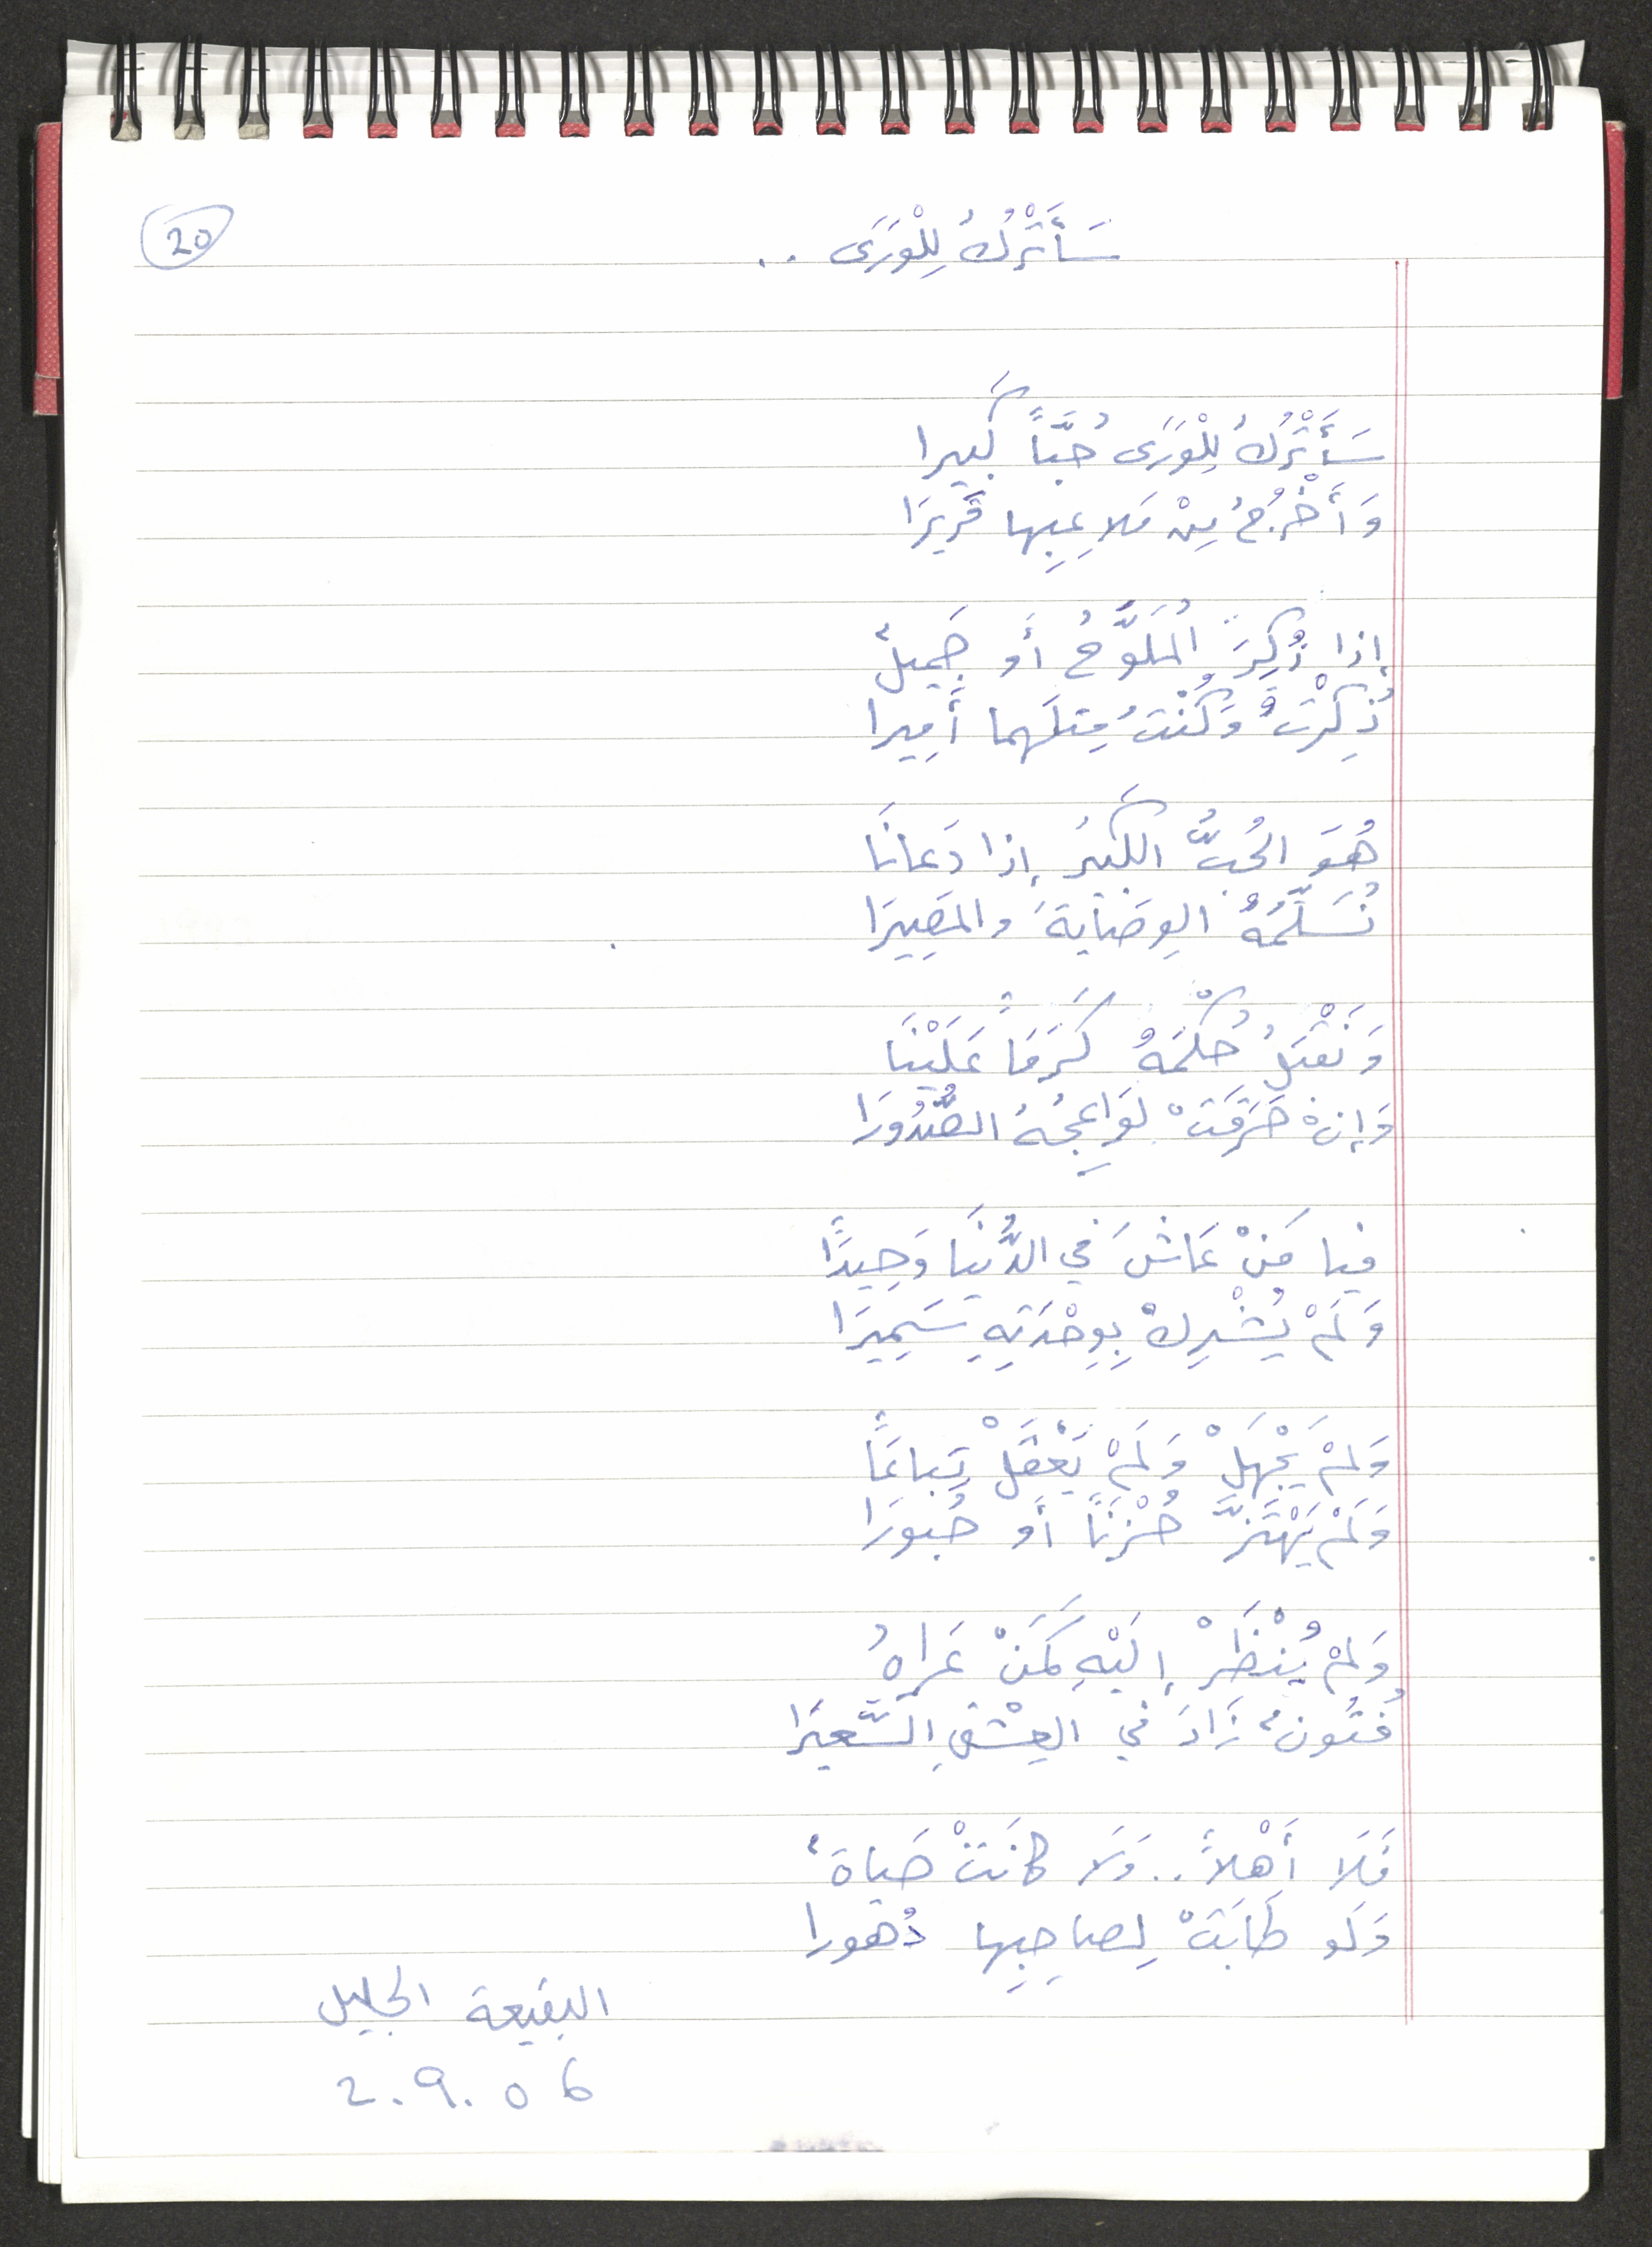 20
سَأَتْرُكُ لِلْوَرَى ..
سَأَتْرُكُ لِلْوَرَى حُبَّاً كَبيرا
وَأَخْرُجُ مِنْ مَلاعِبِها قَرِيرَا
إذا ذُكِرَ المُلَوَّحُ أَو جَمِيلٌ
ذُكِرْتُ وَكُنْتُ مِثلَهما أَمِيرا
هُوَ الحُبُّ الكَبيرُ إذا دَعانَا
نُسَلِّمُهُ الوِصَايَةَ والمَصِيرَا
وَنَقْبَلُ حُكْمَهُ كَرَمَاً عَلَيْنَا
وَإنْ حَرَقَتْ لَوَاعِجُهُ الصُّدُورَا
فيا مَنْ عَاشَ في الدُّنْيَا وَحِيدَاً
وَلَمْ يُشْرِكْ بِوِحْدَتِهِ سَمِيرَا
وَلَمْ يَجْهَلْ وَلَمْ يَعْقَلْ تِباعَاً
وَلَمْ يَهْتَزَّ حُزْنَاً أَو حُبورَا
وَلَمْ يُنْظَرْ إلَيْهِ كَمَنْ عَراهُ
فُتُونٌ زَادَ في العِشْقِ السَّعيرَا
فَلَا أَهْلاً.. وَلَا كانَتْ حَياةٌ
وَلَو طَابَتْ لِصاحِبِها دُهورا
البقيعة الجليل
2.9.06